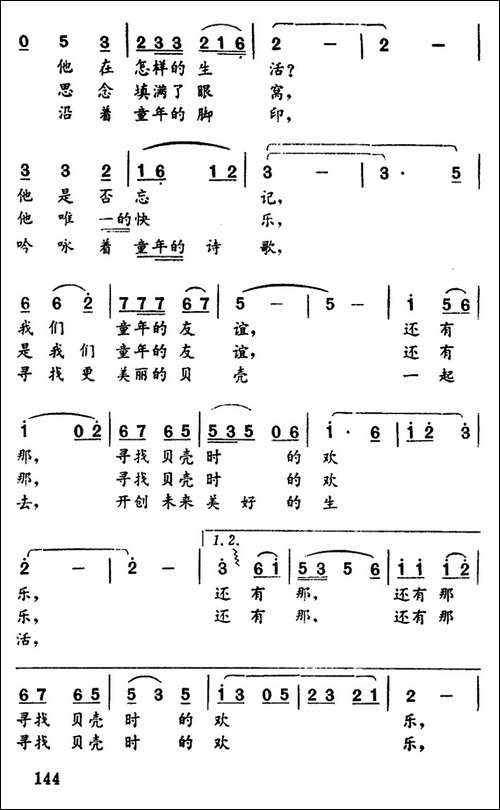 0 5 3 | 2 3 3 2 1 6 | 2 — | 2 — |
他 在 怎样的 生 活?
思 念 填满了 眼 窝,
沿 着 童年的 脚 印,
3 3 2 | 1 6 1 2 | 3 — | 3 · 5 |
他 是 否 忘 记,
他 唯 一的快 乐,
吟 咏 着 童年的 诗 歌,
6 6 2 | 7 7 7 6 7 | 5 — | 5 — | i 5 6 |
我 们 童年的 友 谊, 还 有
是 我 们 童年的 友 谊, 还 有
寻 找 更 美丽的 贝 壳 一 起
i 0 2 | 6 7 6 5 | 5 3 5 0 6 | i · 6 | i 2 3 |
那, 寻找 贝壳 时 的 欢
那, 寻找 贝壳 时 的 欢
去, 开创 未来 美 好 的 生
1. 2.
2 — | 2 — | 3 6 i | 5 3 5 6 | i i i 2 |
乐, 还 有 那, 还有 那
乐, 还 有 那, 还有 那
活,
6 7 6 5 | 5 3 5 | i 3 0 5 | 2 3 2 1 | 2 — |
寻找 贝壳 时 的 欢 乐,
寻找 贝壳 时 的 欢 乐,
144